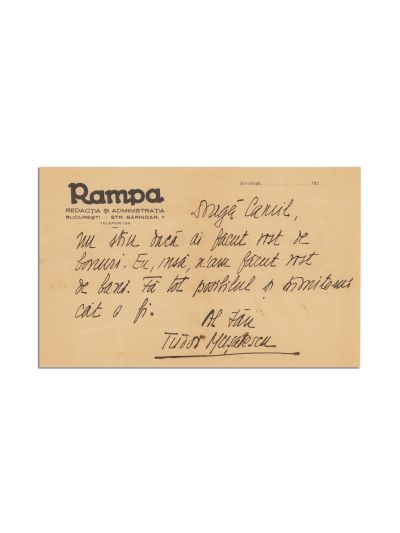 Rampa
REDACȚIA ȘI ADMINISTRAȚIA
BUCUREȘTI — STR. SĂRINDAR, 7
TELEFON
București, 193
Dragă Camil,
nu știu dacă ai făcut rost de
bonuri. Eu, însă, n'am făcut rost
de bani. Fă tot posibilul și
cât o fi.
Al tău
Tudor Mușatescu